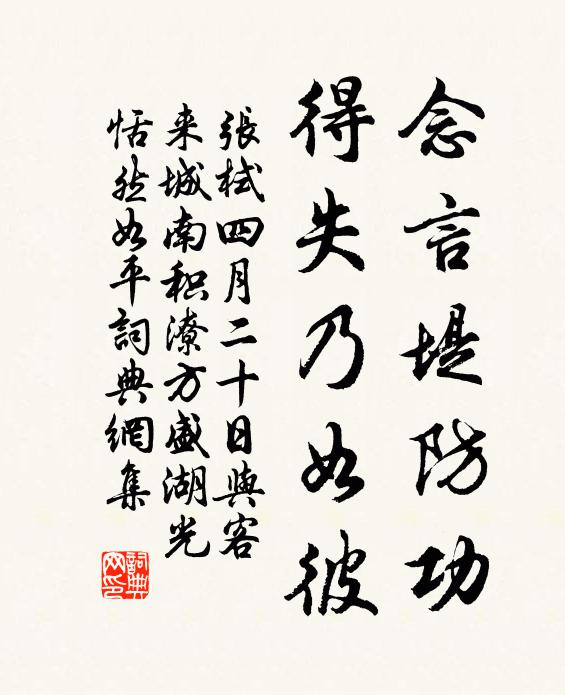 念言堤防功
得失乃如彼
張栻四月二十日與客
来城南积潦方盛湖光
恬然如平詞典網集
詞典网印